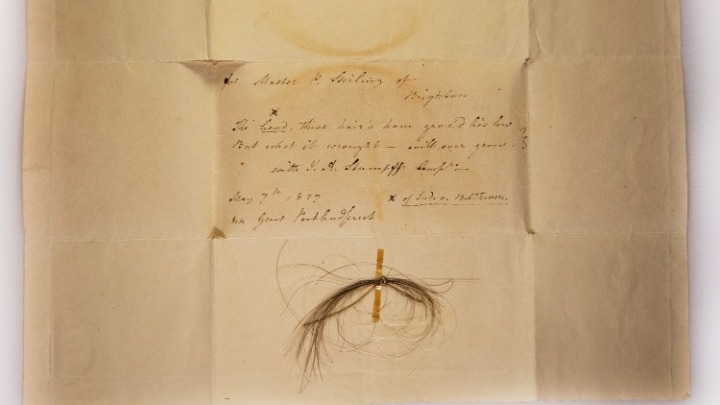 for Master P. of
Brighton
x
The head, these hair's have grac'd lies low
But what it wrought – will ever grow.
with J. A. Stumpff's Compts –
May 7th 1827
x of Lud. v. Beethoven.
44 Great Portland Street